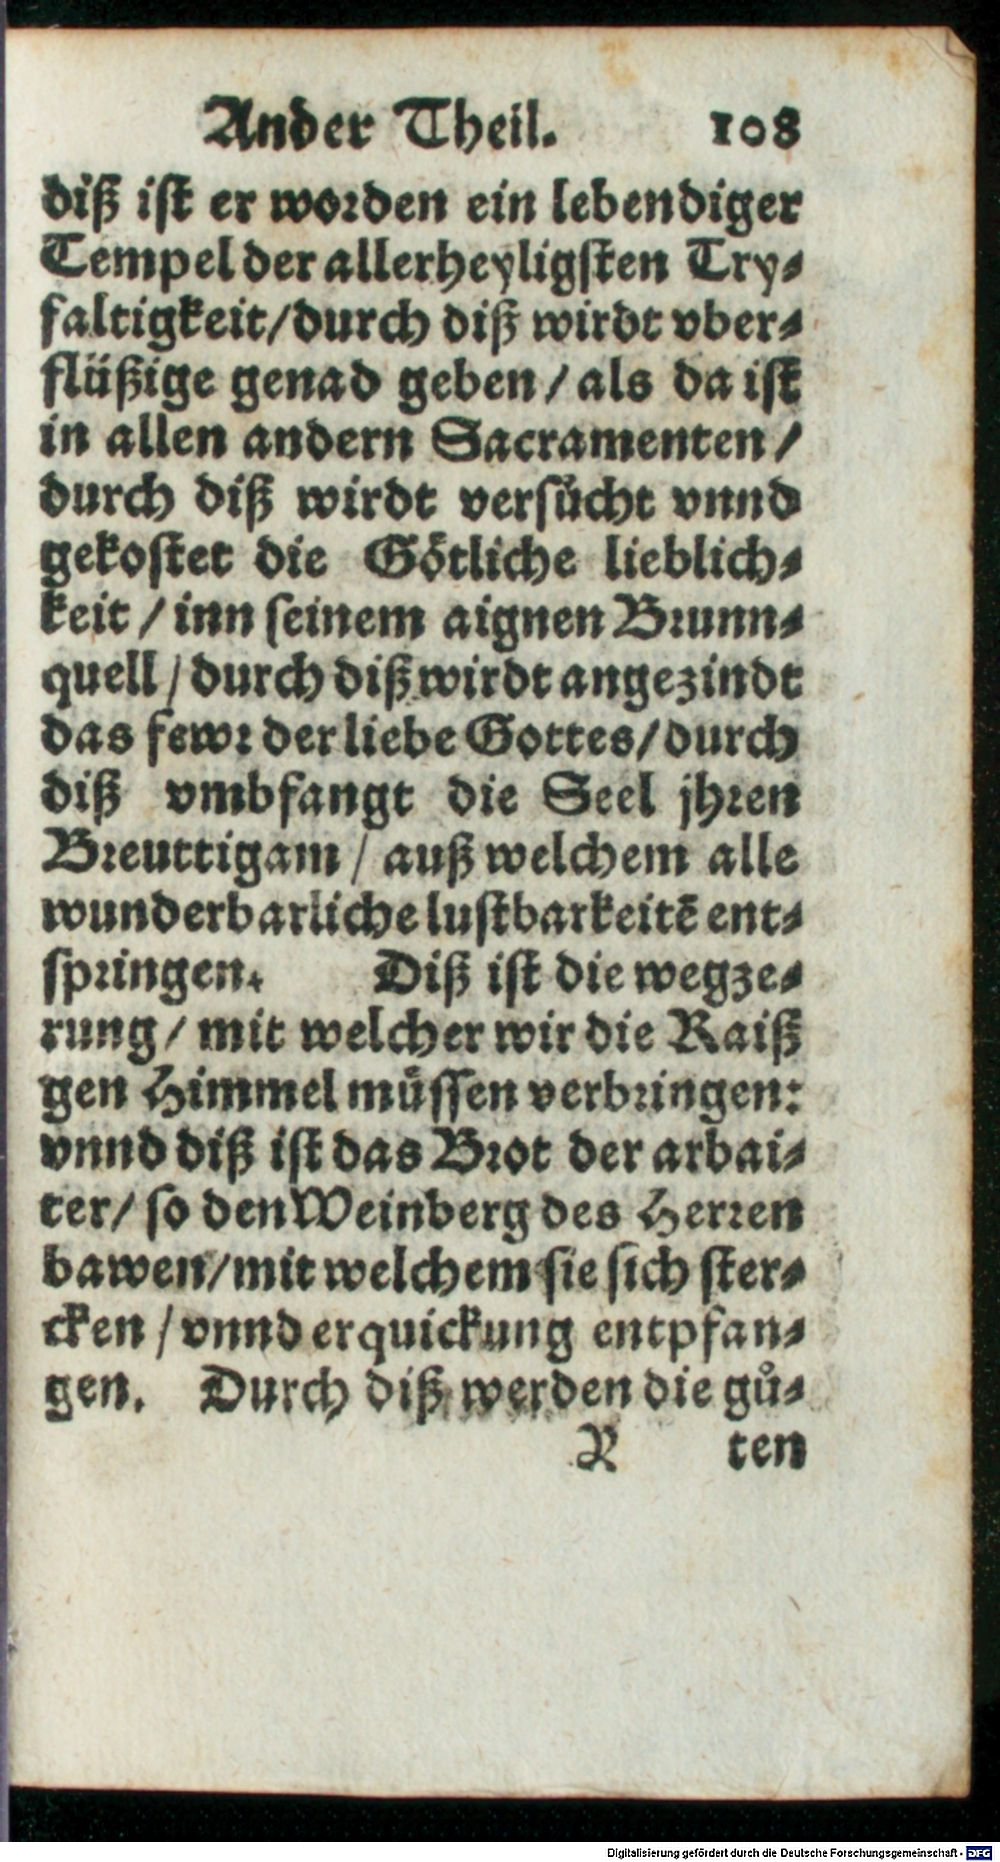 Ander Theil. 108
diß ist er worden ein lebendiger
Tempel der allerheyligsten Try-
faltigkeit/durch diß wirdt vber-
flüßige genad geben / als da ist
in allen andern Sacramenten /
durch diß wirdt versuͤcht vnnd
gekostet die Goͤtliche lieblich-
keit / inn seinem aignen Brunn-
quell / durch diß wirdt angezindt
das fewr der liebe Gottes/durch
diß vmbfangt die Seel jhren
Breuttigam / auß welchem alle
wunderbarliche lustbarkeitẽ ent-
springen. Diß ist die wegze-
rung/ mit welcher wir die Raiß
gen Himmel muͤssen verbringen:
vnnd diß ist das Brot der arbai-
ter/ so den Weinberg des Herren
bawen/mit welchem sie sich ster-
cken / vnnd erquickung entpfan-
gen. Durch diß werden die guͦ-
R ten
Digitalisierung gefördert durch die Deutsche Forschungsgemeinschaft - DFG